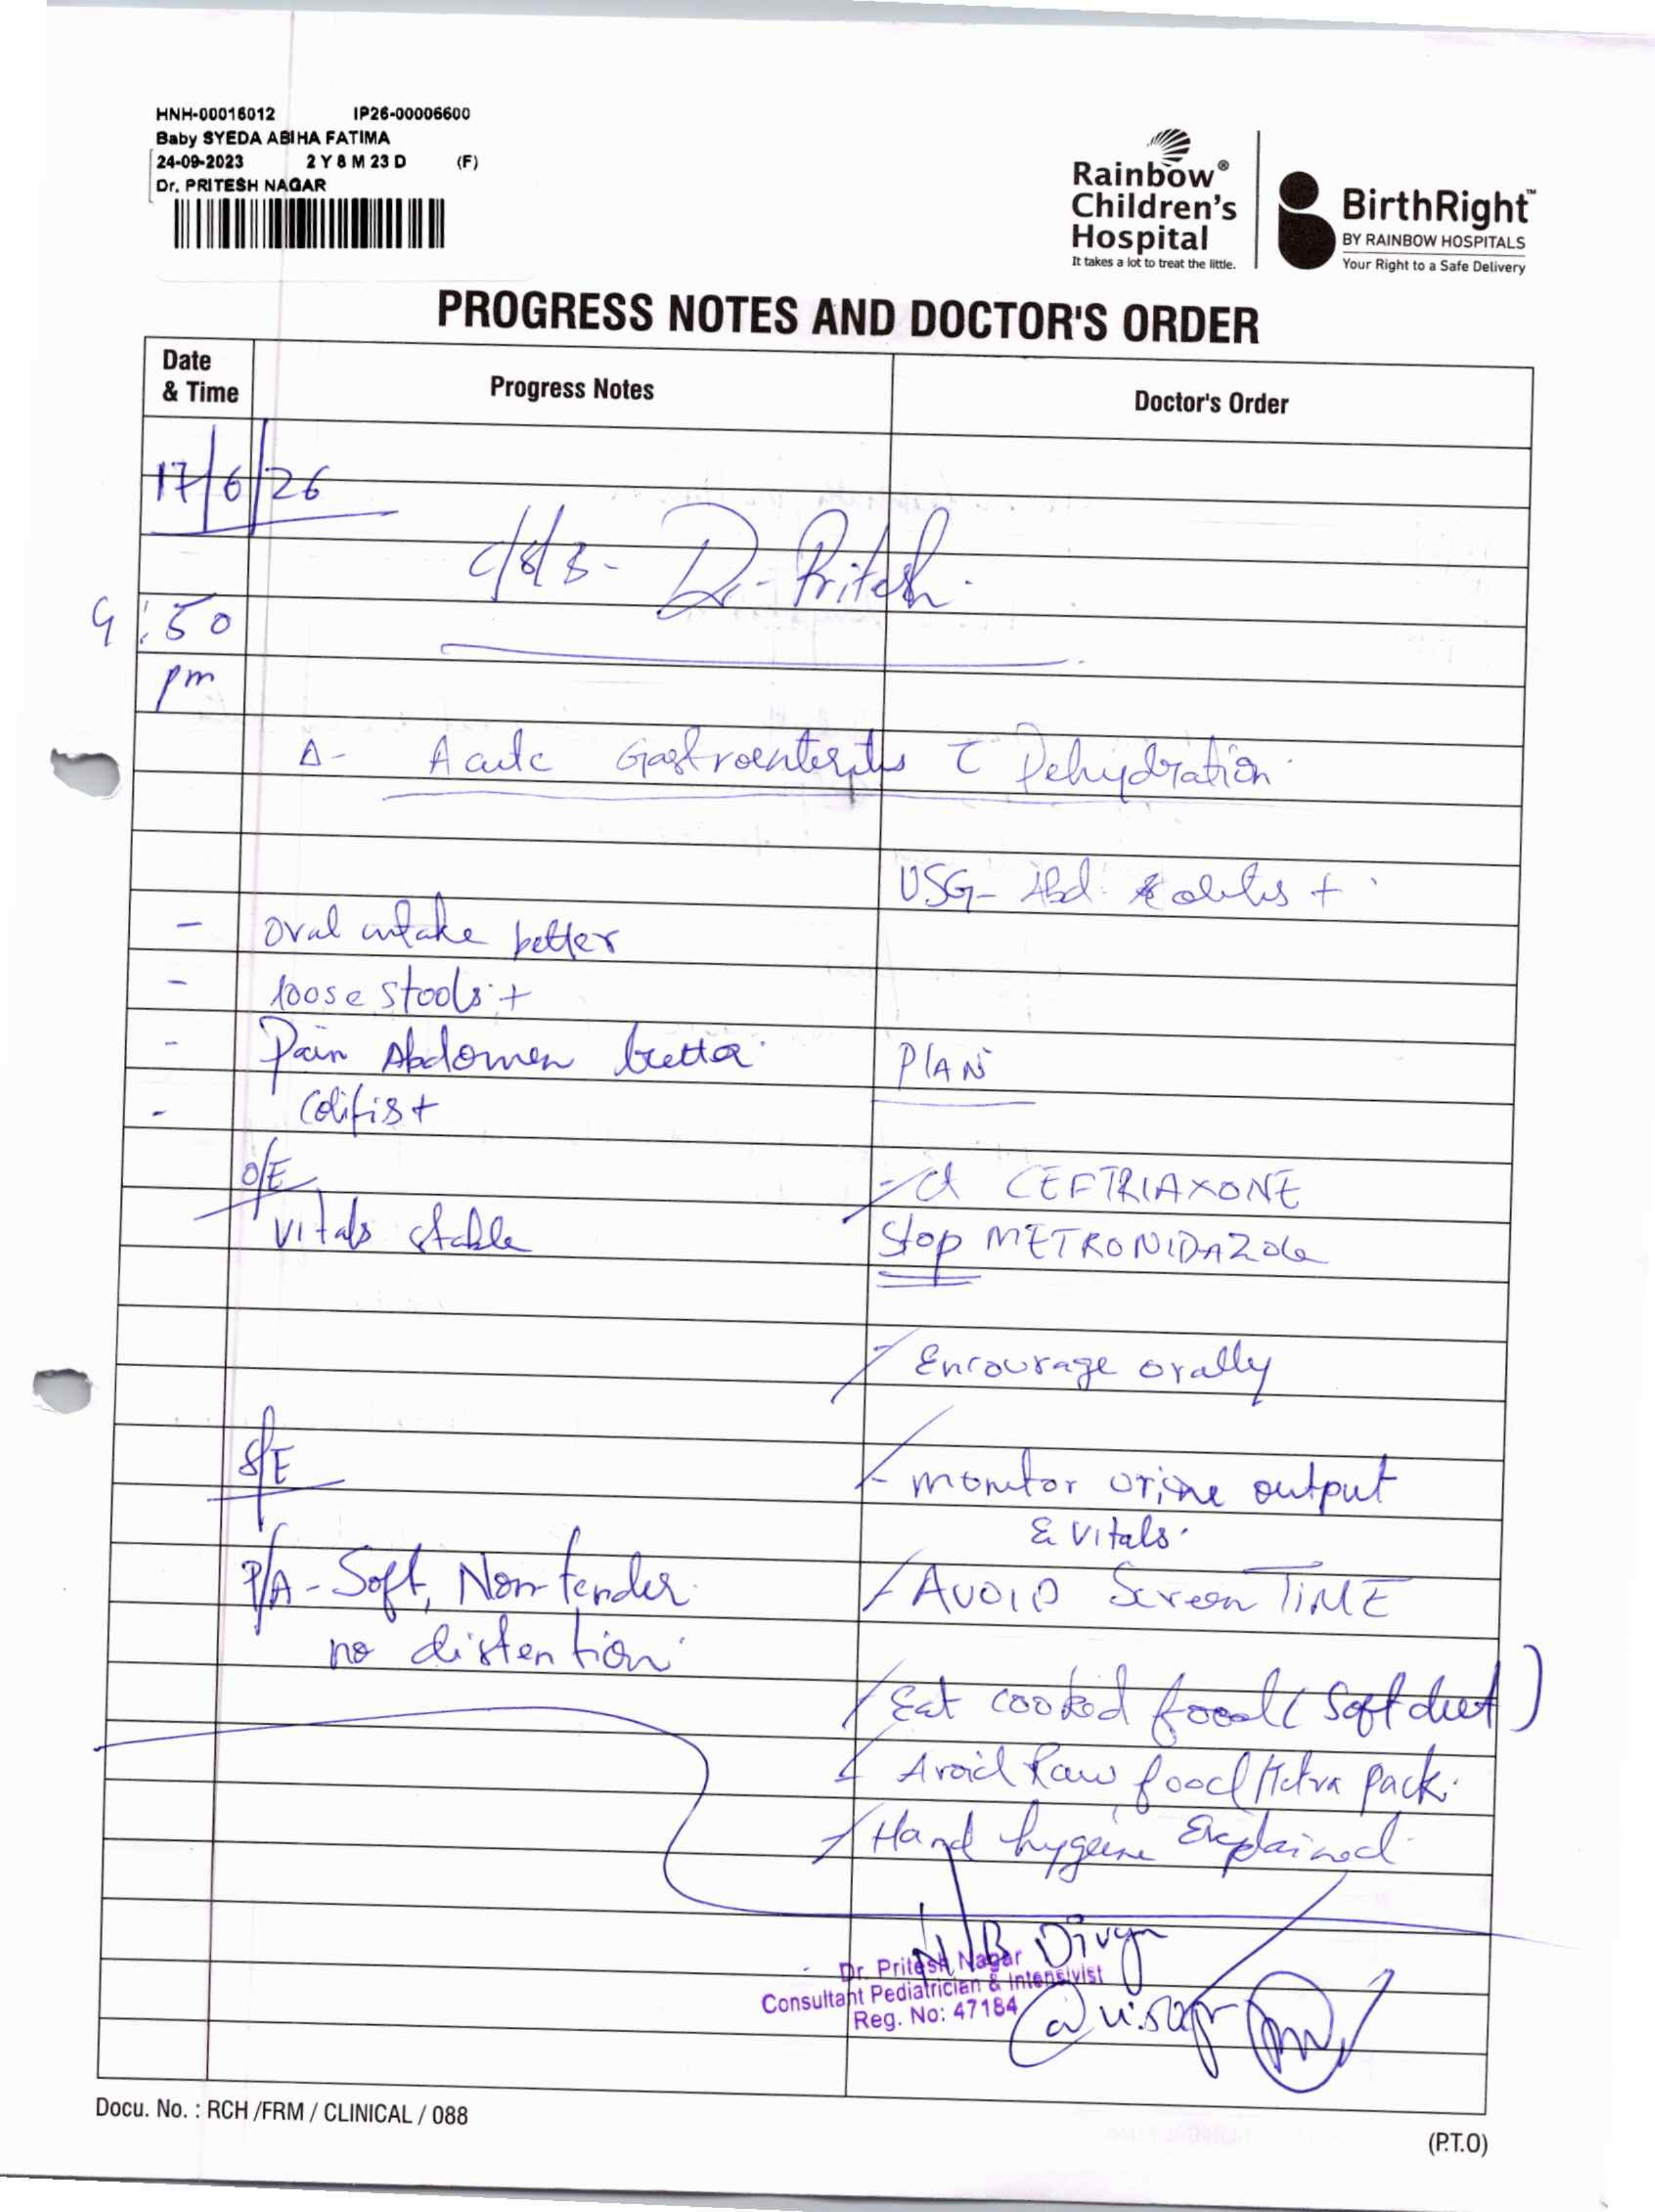 HNH-00016012 IP26-00006600
Baby SYEDA ABIHA FATIMA
24-09-2023 2 Y 8 M 23 D (F)
Dr. PRITESH NAGAR
Rainbow® Children's Hospital
It takes a lot to treat the little.
BirthRight™
BY RAINBOW HOSPITALS
Your Right to a Safe Delivery
PROGRESS NOTES AND DOCTOR'S ORDER
Date & Time Progress Notes Doctor's Order
17/6/26
c/s/b - Dr. Pritesh
:50
pm
Δ- Acute Gastroenteritis c Dehydration
USG- Abd: colitis +
- oral intake better
- loose stools +
- Pain Abdomen better
- Colitis +
PLAN
O/E
vitals stable
- ct CEFTRIAXONE
Stop METRONIDAZOLE
- Encourage orally
S/E
- monitor urine output
& vitals.
P/A - Soft, Non tender
no distention
- AVOID Screen TIME
- Eat cooked food (soft diet)
- Avoid Raw food / Tetra pack.
- Hand hygeine Explained
N/B Divya
Dr. Pritesh Nagar
Consultant Pediatrician & Intensivist
Reg. No: 47184
Docu. No. : RCH /FRM / CLINICAL / 088
(P.T.O)